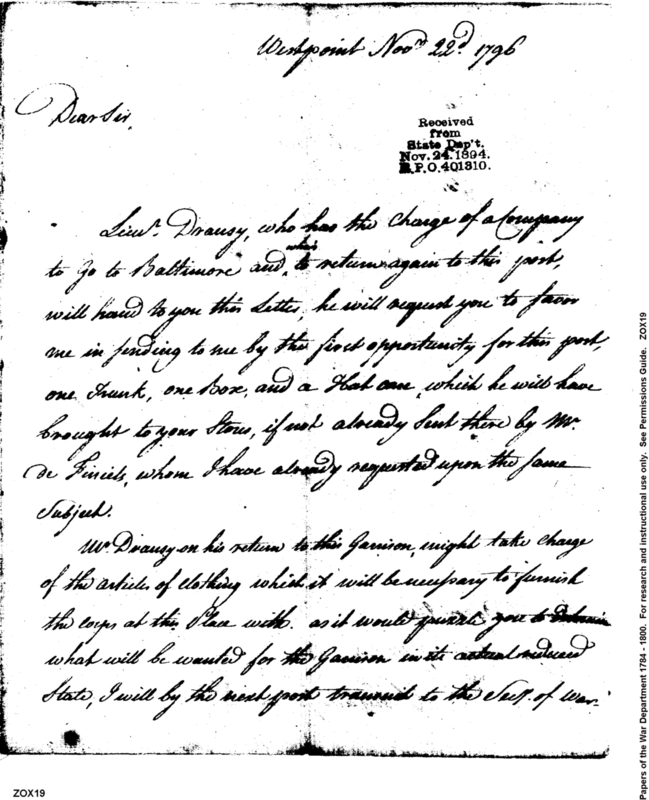 Westpoint Novr 22d. 1796
Dear Sir,
Received
from
State Dep't.
Nov. 24. 1894.
R.P.O. 401310.
Lieut. Drausy, who has the Charge of a Company
to Go to Baltimore and, to return again to this post,
will hand to you this Letter, he will request you to favor
me in sending to me by the first opportunity for this post,
one Trunk, one Box, and a Hat case, which he will have
brought to your Stores, if not already Sent there by Mr.
de Finiels, whom I have already requested upon the same
Subject.
Mr. Drausy on his return to this Garrison, might take charge
of the articles of clothing which it will be necessary to furnish
the corps at this Place with. as it would puzzle you to
what will be wanted for the Garrison in its actual reduced
State, I will by the next post transmit to the Secy. of War
ZOX19
Papers of the War Department 1784 - 1800. For research and instructional use only. See Permissions Guide. ZOX19